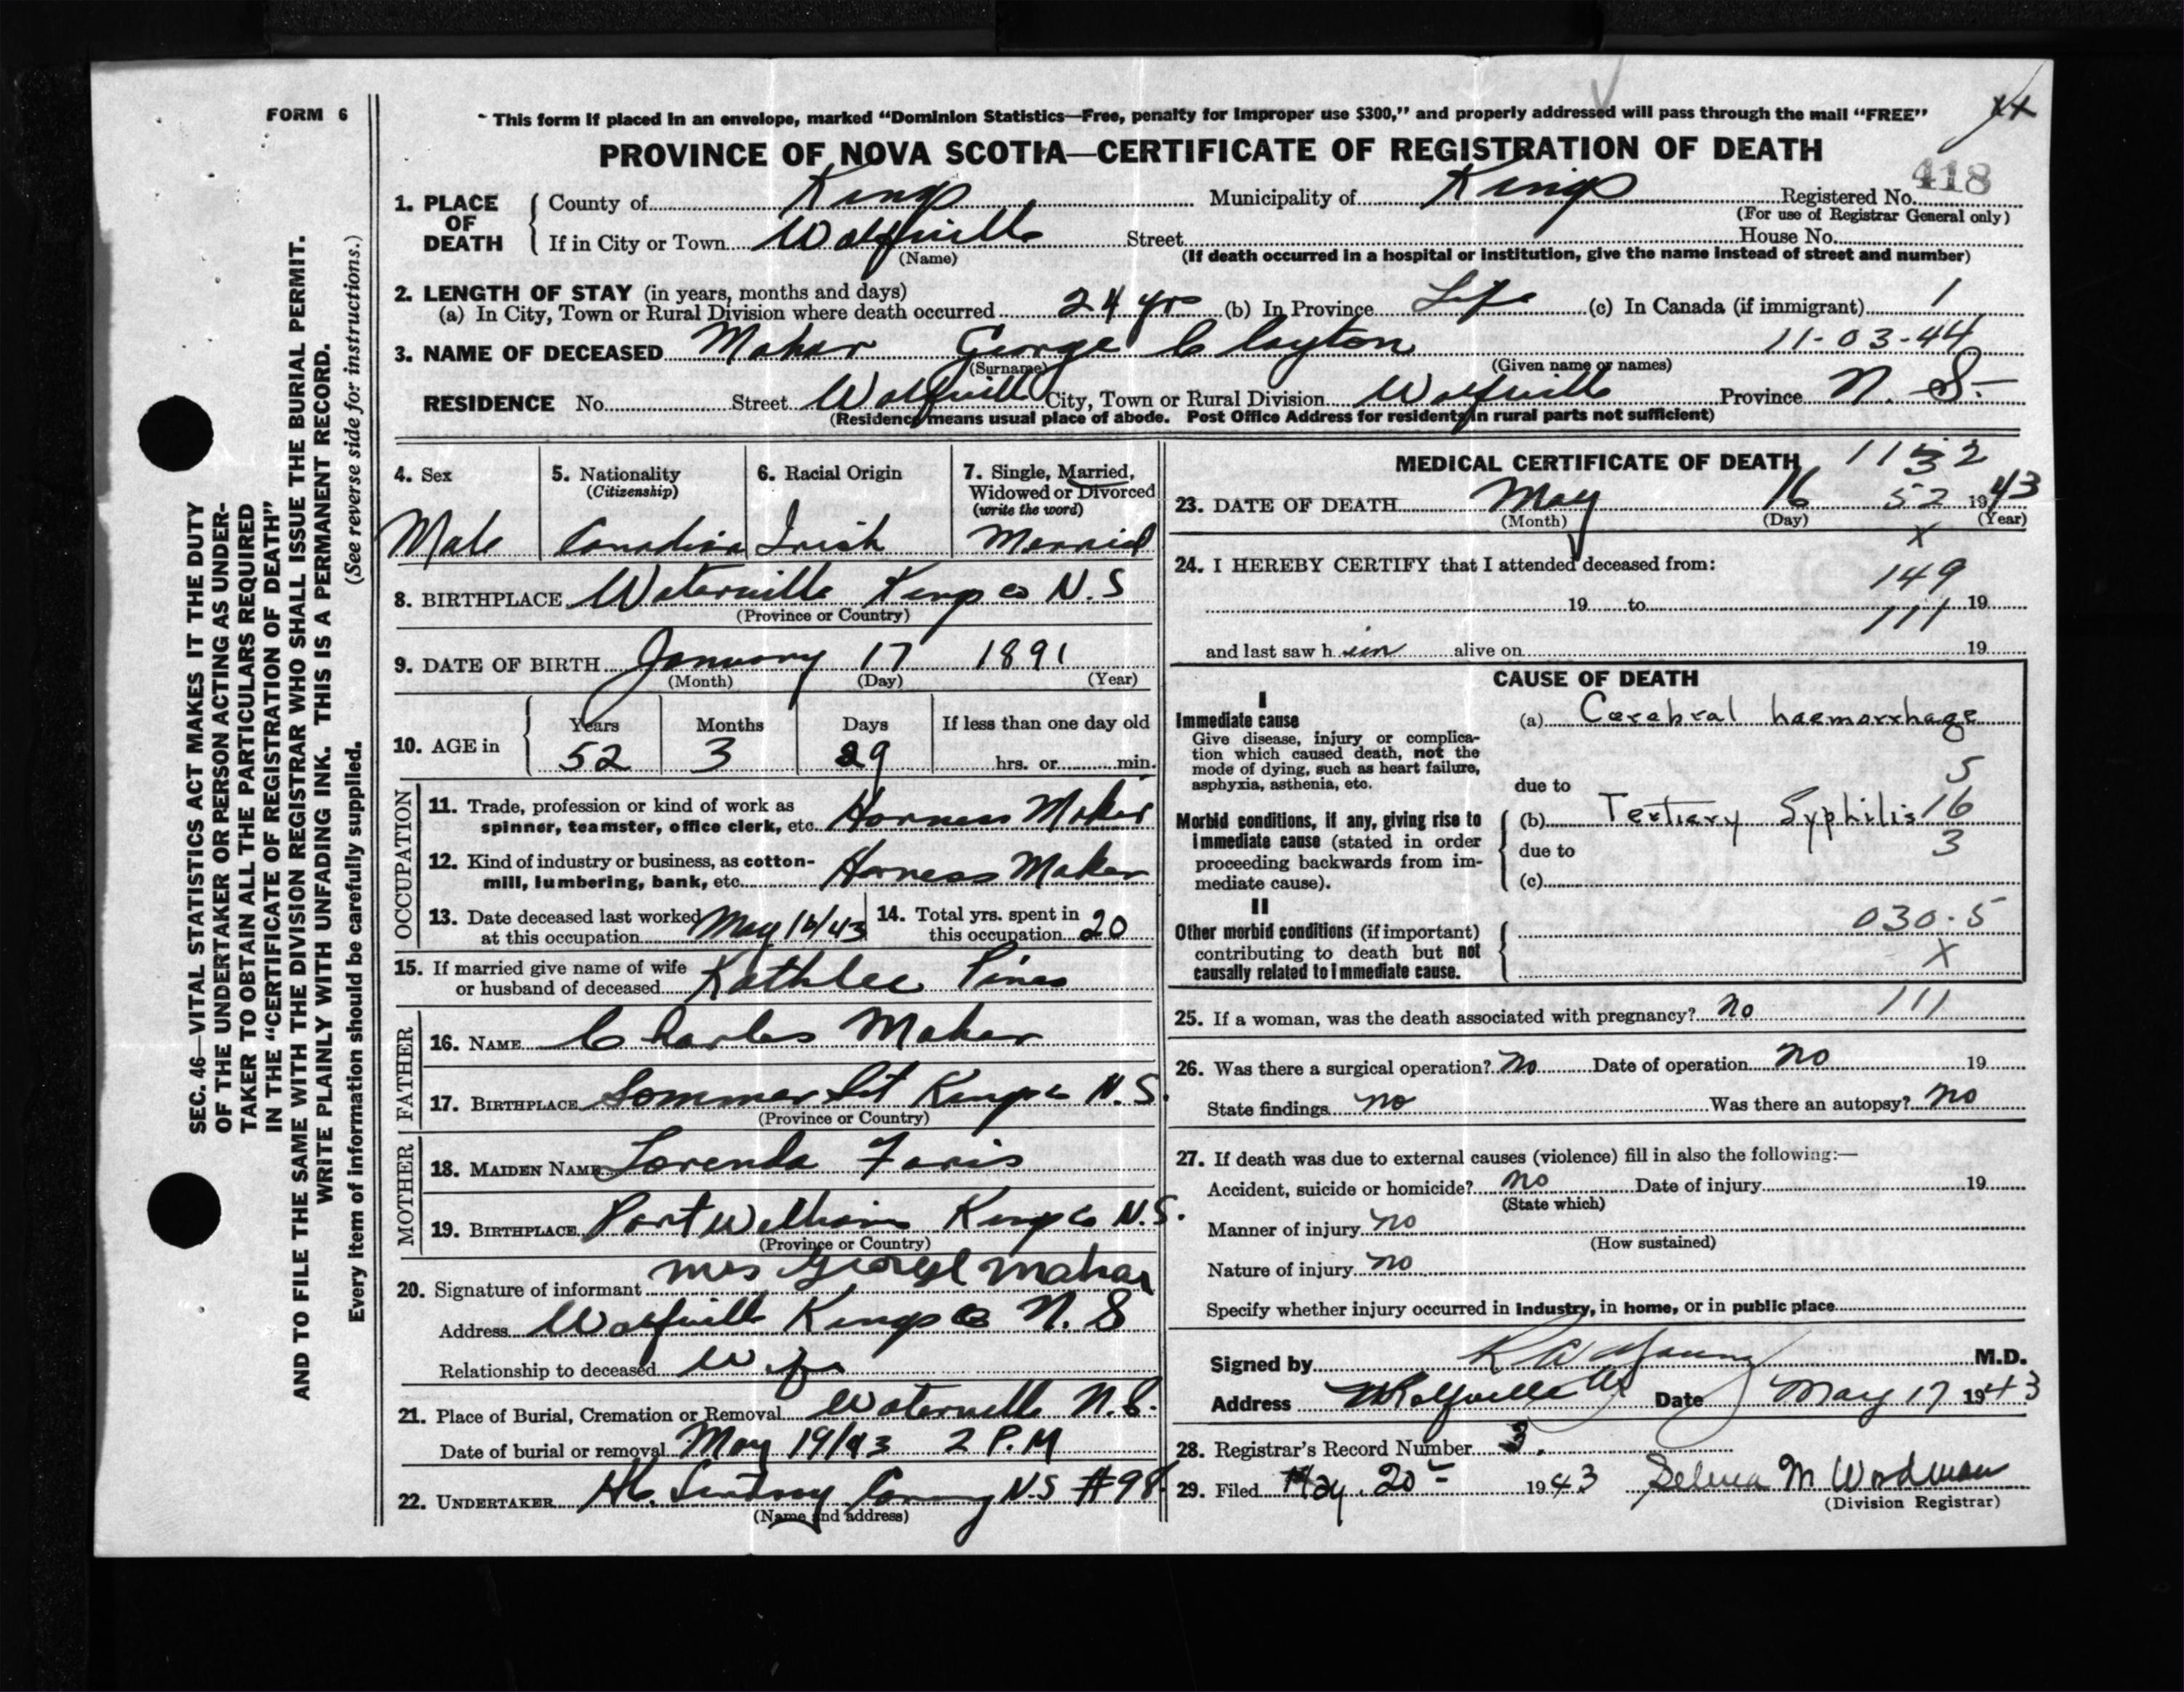 FORM 6
This form if placed in an envelope, marked "Dominion Statistics—Free, penalty for improper use $300," and properly addressed will pass through the mail "FREE"
PROVINCE OF NOVA SCOTIA—CERTIFICATE OF REGISTRATION OF DEATH
418
1. PLACE OF DEATH
County of Kings Municipality of Kings Registered No.
(For use of Registrar General only)
If in City or Town Wolfville Street House No.
(Name) (If death occurred in a hospital or institution, give the name instead of street and number)
2. LENGTH OF STAY (in years, months and days)
(a) In City, Town or Rural Division where death occurred 24 yrs (b) In Province Life (c) In Canada (if immigrant) 1
3. NAME OF DECEASED Mahar George Clayton 11-03-44
(Surname) (Given name or names)
RESIDENCE No. Street Wolfville City, Town or Rural Division Wolfville Province N. S.
(Residence means usual place of abode. Post Office Address for residents in rural parts not sufficient)
4. Sex
Male
5. Nationality
(Citizenship)
Canadian
6. Racial Origin
Irish
7. Single, Married,
Widowed or Divorced
(write the word)
Married
8. BIRTHPLACE Waterville Kings Co N.S
(Province or Country)
9. DATE OF BIRTH January 17 1891
(Month) (Day) (Year)
10. AGE in
Years Months Days If less than one day old
52 3 29 hrs. or min.
OCCUPATION
11. Trade, profession or kind of work as
spinner, teamster, office clerk, etc. Harness Maker
12. Kind of industry or business, as cotton-
mill, lumbering, bank, etc. Harness Maker
13. Date deceased last worked
at this occupation May 16/43
14. Total yrs. spent in
this occupation 20
15. If married give name of wife
or husband of deceased Kathlee Pines
FATHER
16. NAME Charles Mahar
17. BIRTHPLACE Sommer Set Kings Co N.S.
(Province or Country)
MOTHER
18. MAIDEN NAME Lorenda Faris
19. BIRTHPLACE Port Williams Kings Co N.S.
(Province or Country)
20. Signature of informant Mrs George Mahar
Address Wolfville Kings Co N. S
Relationship to deceased Wife
21. Place of Burial, Cremation or Removal Waterville N.S.
Date of burial or removal May 19/43 2 P.M
22. UNDERTAKER Lindsay N.S #98
(Name and address)
MEDICAL CERTIFICATE OF DEATH
1152
3
23. DATE OF DEATH May 16 52 1943
(Month) (Day) (Year)
x
24. I HEREBY CERTIFY that I attended deceased from:
149
19 to 19
111
and last saw h im alive on 19
CAUSE OF DEATH
I
Immediate cause
Give disease, injury or complica-
tion which caused death, not the
mode of dying, such as heart failure,
asphyxia, asthenia, etc.
(a) Cerebral haemorrhage
5
due to
Morbid conditions, if any, giving rise to
immediate cause (stated in order
proceeding backwards from im-
mediate cause).
(b) Tertiary Syphilis 16
due to 3
(c)
II
Other morbid conditions (if important)
contributing to death but not
causally related to immediate cause.
030.5
X
25. If a woman, was the death associated with pregnancy? No 111
26. Was there a surgical operation? No Date of operation No 19
State findings No Was there an autopsy? No
27. If death was due to external causes (violence) fill in also the following:—
Accident, suicide or homicide? No Date of injury 19
(State which)
Manner of injury No
(How sustained)
Nature of injury No
Specify whether injury occurred in industry, in home, or in public place
Signed by M.D.
Address Wolfville NS Date May 17 1943
28. Registrar's Record Number 3.
29. Filed May. 20 1943 Selena M Woodman
(Division Registrar)
SEC. 46—VITAL STATISTICS ACT MAKES IT THE DUTY
OF THE UNDERTAKER OR PERSON ACTING AS UNDER-
TAKER TO OBTAIN ALL THE PARTICULARS REQUIRED
IN THE "CERTIFICATE OF REGISTRATION OF DEATH"
AND TO FILE THE SAME WITH THE DIVISION REGISTRAR WHO SHALL ISSUE THE BURIAL PERMIT.
WRITE PLAINLY WITH UNFADING INK. THIS IS A PERMANENT RECORD.
Every item of information should be carefully supplied. (See reverse side for instructions.)